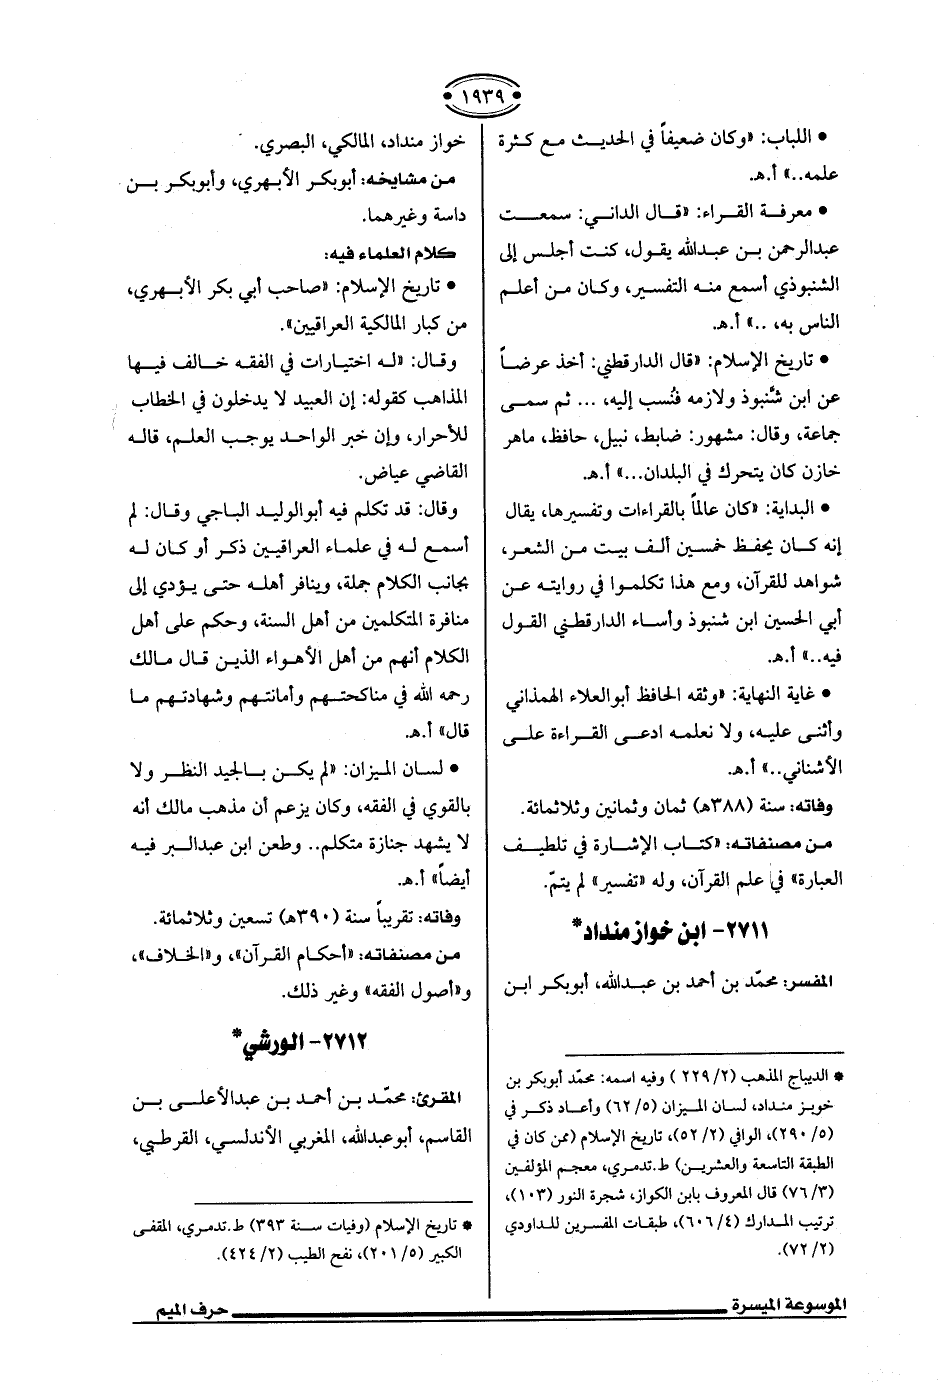 ١٩٣٩
• اللباب: «وكان ضعيفاً في الحديث مع كثرة
علمه..» أ.هـ.
• معرفة القراء: «قال الداني: سمعت
عبدالرحمن بن عبدالله يقول، كنت أجلس إلى
الشنبوذي أسمع منه التفسير، وكان من أعلم
الناس به، ..» أ.هـ.
• تاريخ الإسلام: «قال الدارقطني: أخذ عرضاً
عن ابن شنَّبوذ ولازمه فنُسب إليه، ... ثم سمى
جماعة، وقال: مشهور: ضابط، نبيل، حافظ، ماهر
خازن كان يتحرك في البلدان...» أ.هـ.
• البداية: «كان عالماً بالقراءات وتفسيرها، يقال
إنه كان يحفظ خمسين ألف بيت من الشعر،
شواهد للقرآن، ومع هذا تكلموا في روايته عن
أبي الحسين ابن شنبوذ وأساء الدارقطني القول
فيه..» أ.هـ.
• غاية النهاية: «وثقه الحافظ أبوالعلاء الهمذاني
وأثنى عليه، ولا نعلمه ادعى القراءة على
الأشناني..» أ.هـ.
وفاته: سنة (٣٨٨هـ) ثمان وثمانين وثلاثمائة.
من مصنفاته: «كتاب الإشارة في تلطيف
العبارة» في علم القرآن، وله «تفسير» لم يتمّ.
٢٧١١- ابن خواز منداد*
المفسر: محمّد بن أحمد بن عبدالله، أبوبكر ابن
* الديباج المذهب (٢/ ٢٢٩) وفيه اسمه: محمّد أبوبكر بن
خويز منداد، لسان الميزان (٥/ ٦٢) وأعاد ذكر في
(٥/ ٢٩٠)، الوافي (٢/ ٥٢)، تاريخ الإسلام (ممن كان في
الطبقة التاسعة والعشرين) ط.تدمري، معجم المؤلفين
(٣/ ٧٦) قال المعروف بابن الكواز، شجرة النور (١٠٣)،
ترتيب المدارك (٤/ ٦٠٦)، طبقات المفسرين للداودي
(٢/ ٧٢).
خواز منداد، المالكي، البصري.
من مشايخه: أبوبكر الأبهري، وأبوبكر بن
داسة وغيرهما.
كلام العلماء فيه:
• تاريخ الإسلام: «صاحب أبي بكر الأبهري،
من كبار المالكية العراقيين».
وقال: «له اختيارات في الفقه خالف فيها
المذاهب كقوله: إن العبيد لا يدخلون في الخطاب
للأحرار، وإن خبر الواحد يوجب العلم، قاله
القاضي عياض.
وقال: قد تكلم فيه أبوالوليد الباجي وقال: لم
أسمع له في علماء العراقيين ذكر أو كان له
بجانب الكلام جملة، وينافر أهله حتى يؤدي إلى
منافرة المتكلمين من أهل السنة، وحكم على أهل
الكلام أنهم من أهل الأهواء الذين قال مالك
رحمه الله في مناكحتهم وأمانتهم وشهادتهم ما
قال» أ.هـ.
• لسان الميزان: «لم يكن بالجيد النظر ولا
بالقوي في الفقه، وكان يزعم أن مذهب مالك أنه
لا يشهد جنازة متكلم.. وطعن ابن عبدالبر فيه
أيضاً» أ.هـ.
وفاته: تقريباً سنة (٣٩٠هـ) تسعين وثلاثمائة.
من مصنفاته: «أحكام القرآن»، و«الخلاف»،
و«أصول الفقه» وغير ذلك.
٢٧١٢- الورشي*
المقرئ: محمّد بن أحمد بن عبدالأعلى بن
القاسم، أبوعبدالله، المغربي الأندلسي، القرطبي،
* تاريخ الإسلام (وفيات سنة ٣٩٣) ط.تدمري، المقفى
الكبير (٥/ ٢٠١)، نفح الطيب (٢/ ٤٢٤).
الموسوعة الميسرة
حرف الميم